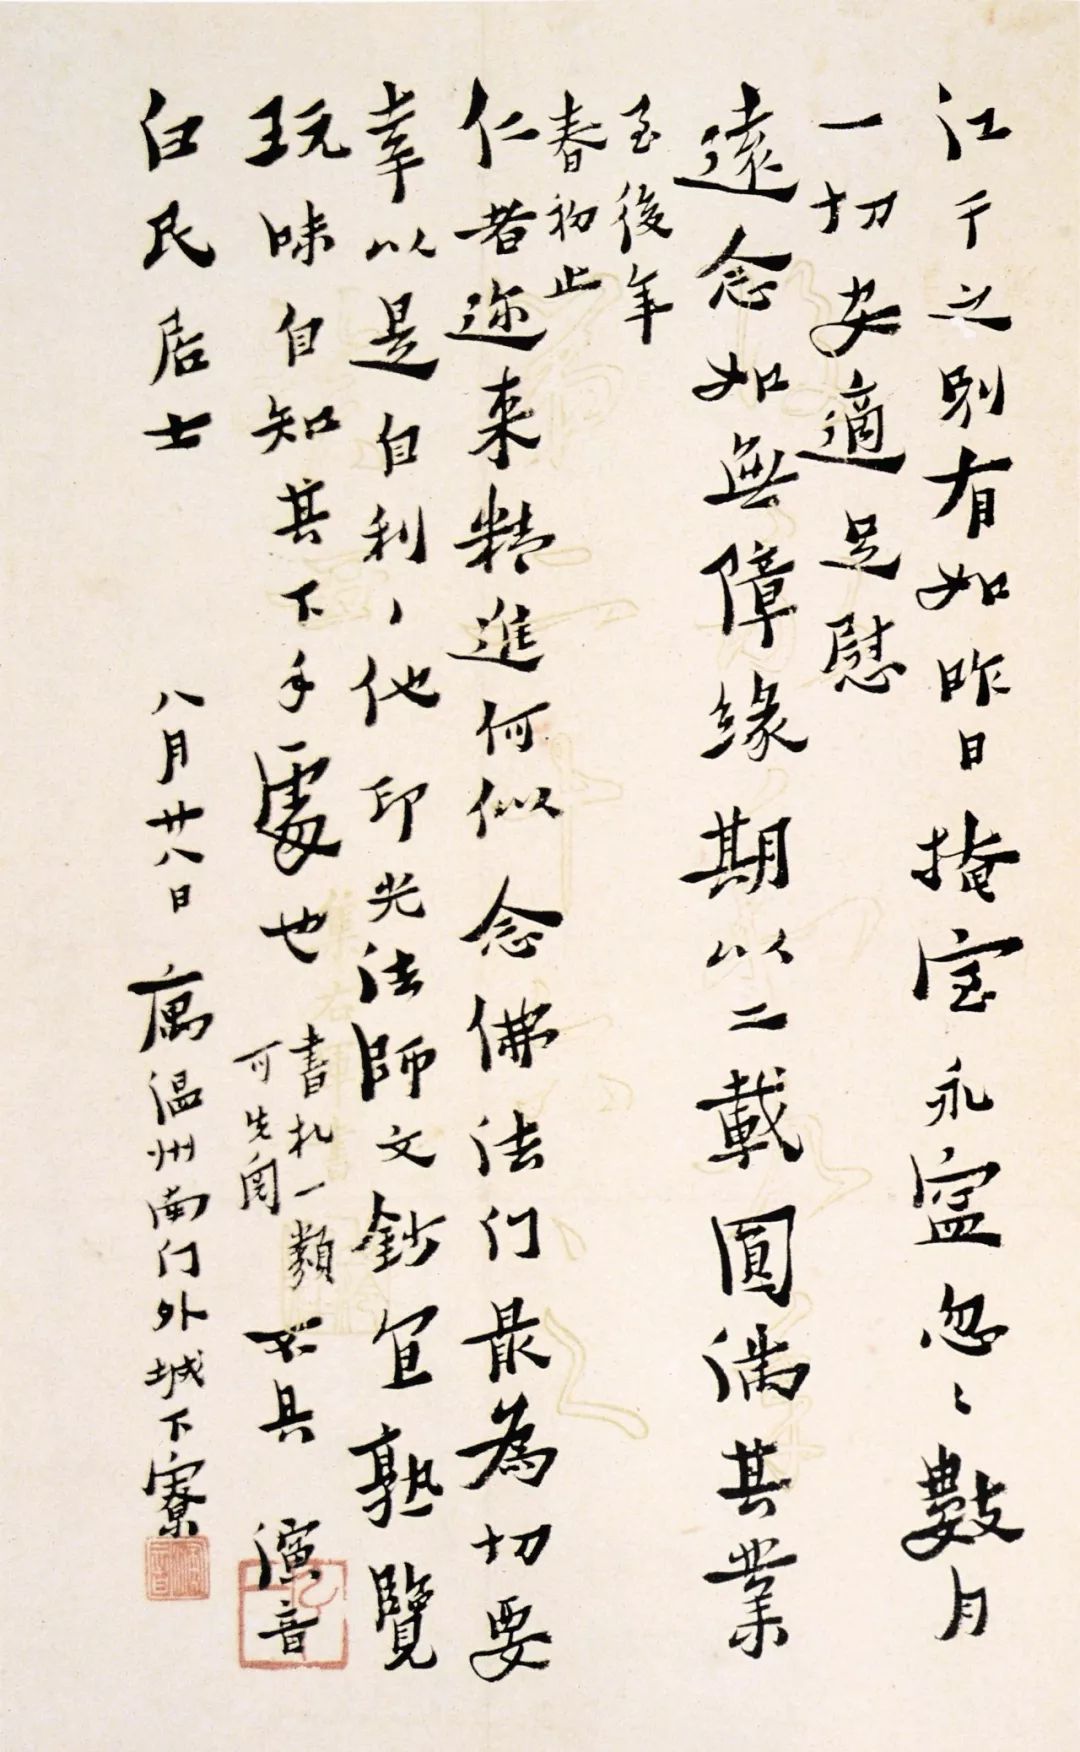 江干之別有如昨日掩室永寧忽〻數月
一切安適足慰
遠念如無障緣期以二載圓滿其業
至後年
春初止
仁者迩来精進何似念佛法门最為切要
幸以是自利、他印光法師文鈔宜熟覽
玩味自知其下手處也 書札一類可先閱 不具 演音
白民居士 八月廿八日 寓温州南门外城下寮